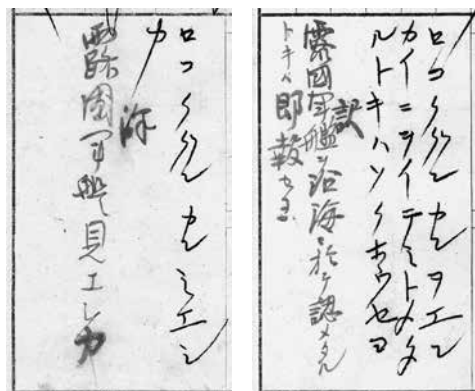 ロコクグンカンヲエン
カイニヲイテミトメタ
ルトキハソクホウセヨ
訳
露國軍艦ヲ沿海ニ於テ認メタル
トキハ即報セヨ
ロコクグンカンミエシ
カ
訳
露國軍艦見エシカ